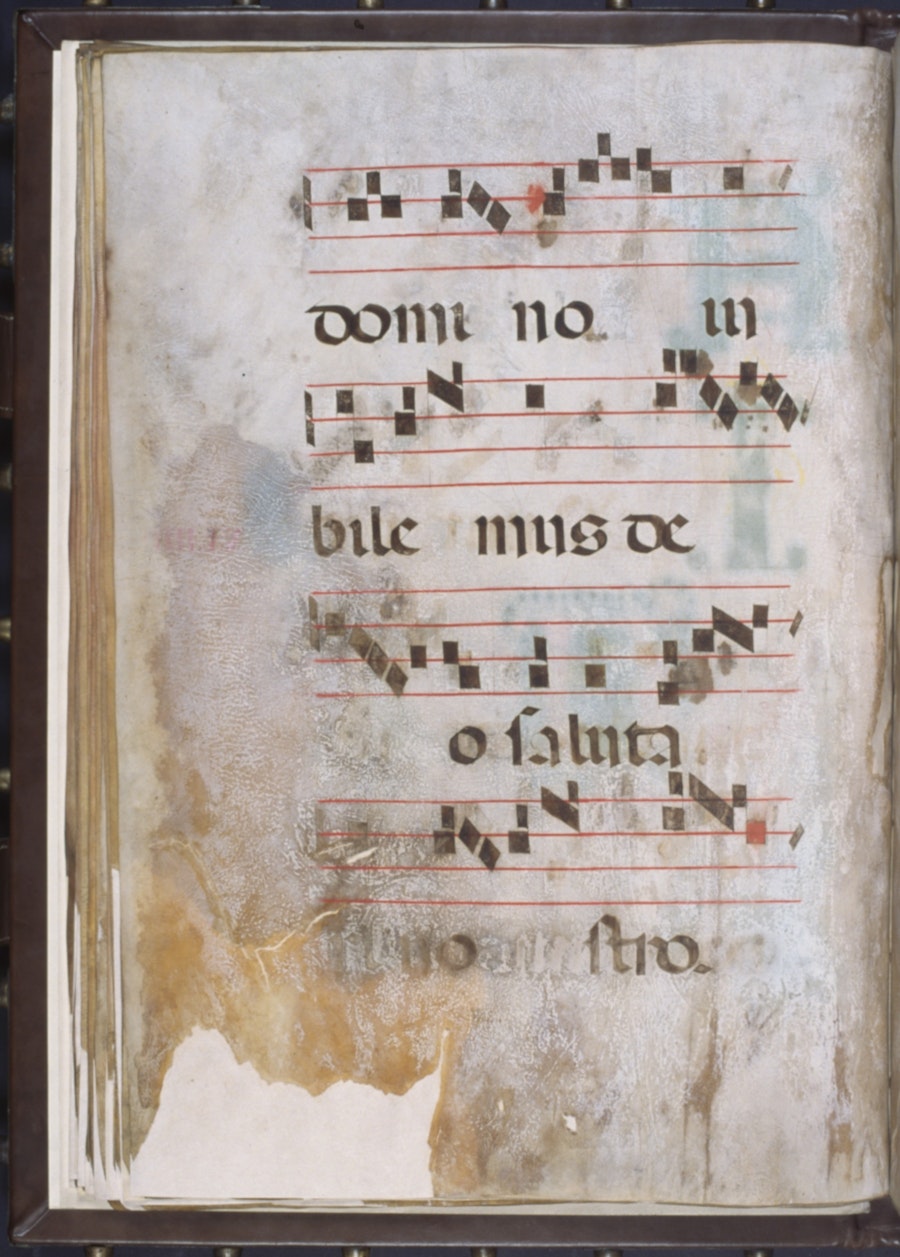 domi no iu
bile mus de
o saluta
no stro.